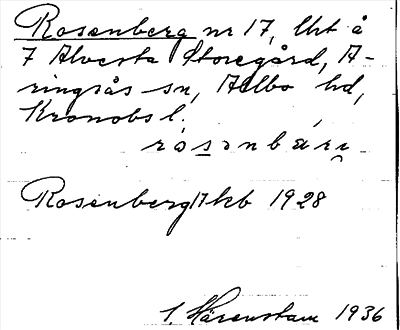 Rosenberg nr 17, lht å
7 Alvesta Storegård, A-
ringsås sn, Allbo hd,
Kronobs l.
rósenbärj
Rosenberg 17 kb 1928
S. Härenstam 1936